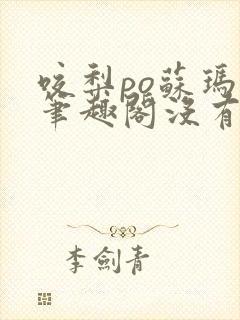 咬梨po蘇瑪
筆趣閣沒有
李劍青